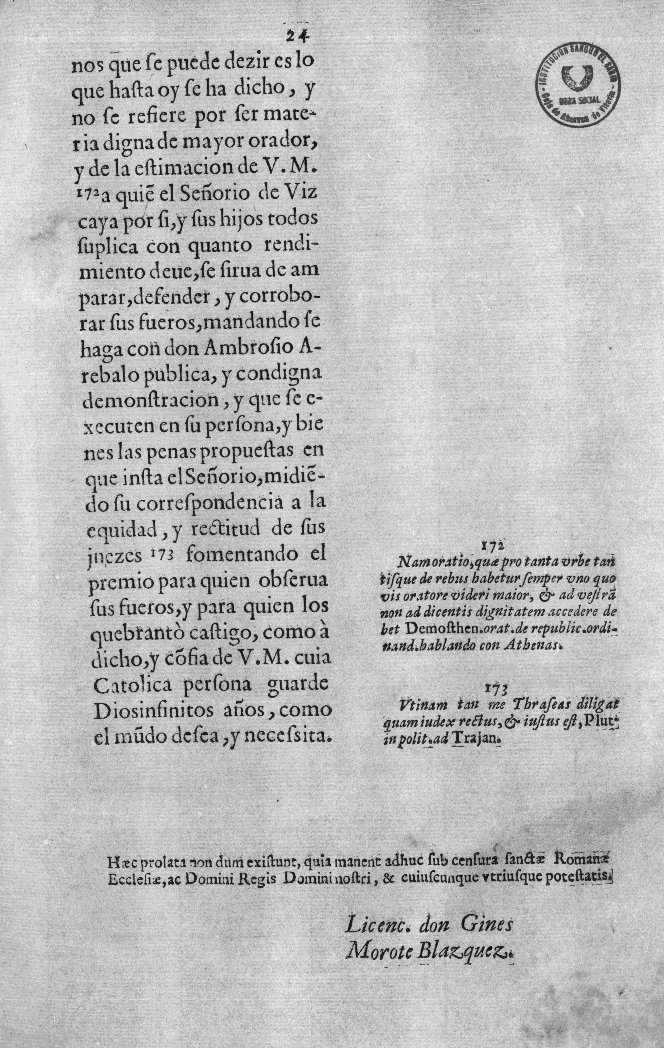 24
nos que ſe puede dezir es lo
que haſta oy ſe ha dicho, y
no ſe refiere por ſer mate-
ria digna de mayor orador,
y de la eſtimacion de V. M.
172 a quiẽ el Señorio de Viz
caya por ſi, y ſus hijos todos
ſuplica con quanto rendi-
miento deue, ſe ſirua de am
parar, defender, y corrobo-
rar ſus fueros, mandando ſe
haga con don Ambroſio A-
rebalo publica, y condigna
demonſtracion, y que ſe e-
xecuten en ſu perſona, y bie
nes las penas propueſtas en
que inſta el Señorio, midiẽ-
do ſu correſpondencia a la
equidad, y rectitud de ſus
juezes 173 fomentando el
premio para quien obſerua
ſus fueros, y para quien los
quebrantò caſtigo, como à
dicho, y cõfia de V. M. cuia
Catolica perſona guarde
Dios infinitos años, como
el mũdo deſea, y neceſsita.
172
Nam oratio, quæ pro tanta vrbe tan
tiſque de rebus habetur ſemper vno quo
vis oratore videri maior, & ad veſtrã
non ad dicentis dignitatem accedere de
bet Demoſthen. orat. de republic. ordi-
nand. hablando con Athenas.
173
Vtinam tan me Thraſeas diligat
quam iudex rectus, & iuſtus eſt, Plut.
in polit. ad Trajan.
Hæc prolata non dum exiſtunt, quia manent adhuc ſub cenſura ſanctæ Romanæ
Eccleſiæ, ac Domini Regis Domini noſtri, & cuiuſcunque vtriuſque poteſtatis.
Licenc. don Gines
Morote Blazquez.
INSTITUCION SANCHO EL SABIO
OBRA SOCIAL
Caja de Ahorros de Vitoria